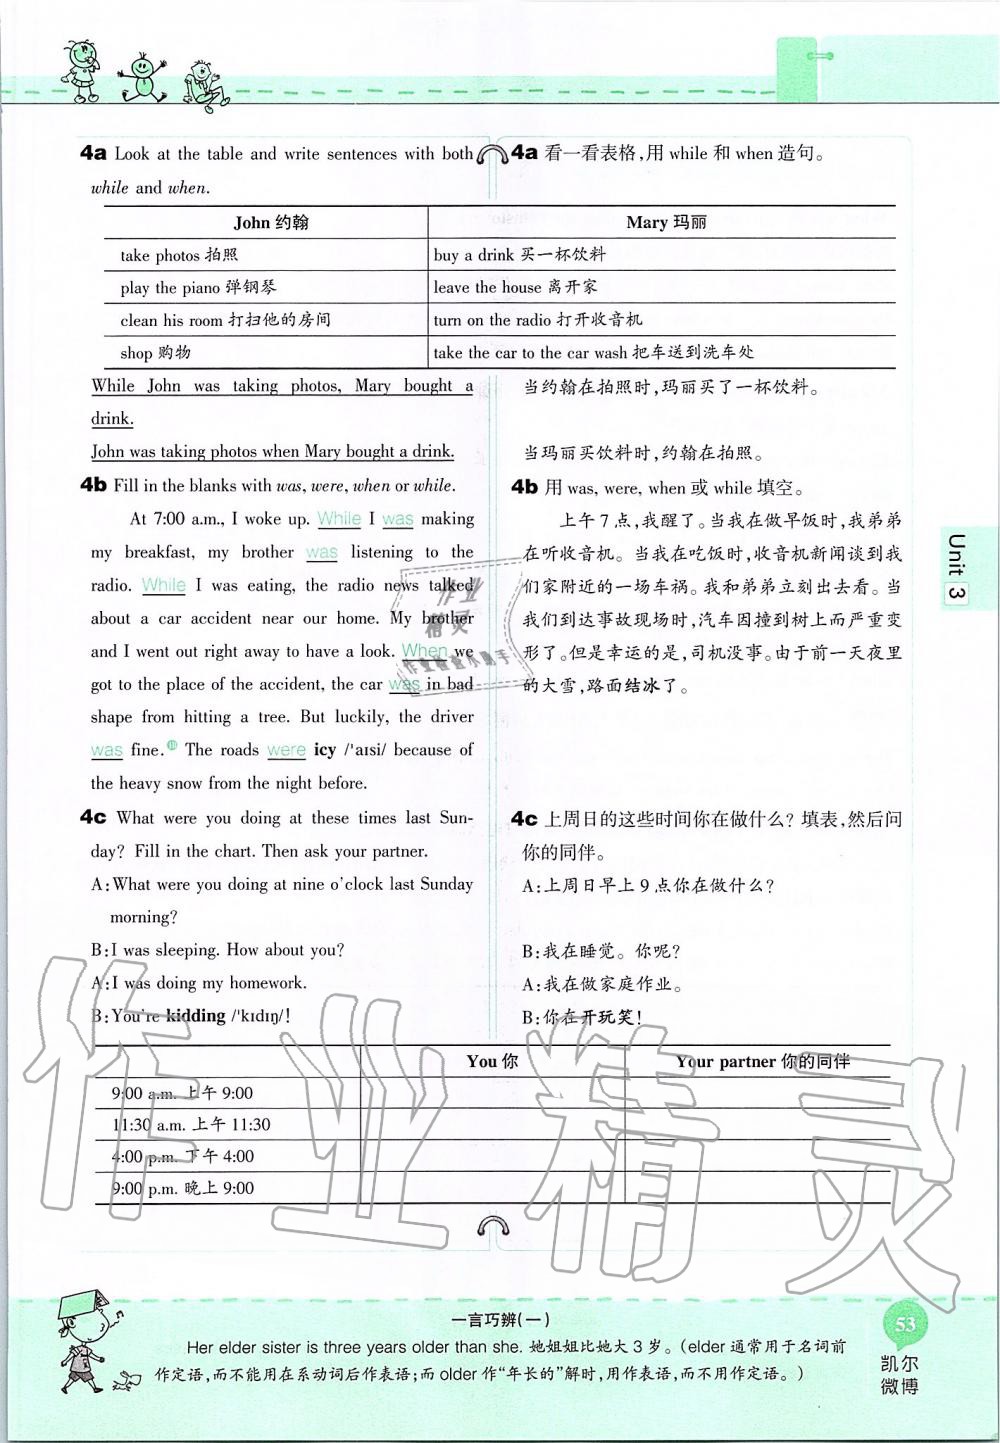 4a Look at the table and write sentences with both
while and when.
4a 看一看表格,用 while 和 when 造句。
John 约翰
Mary 玛丽
take photos 拍照
buy a drink 买一杯饮料
play the piano 弹钢琴
leave the house 离开家
clean his room 打扫他的房间
turn on the radio 打开收音机
shop 购物
take the car to the car wash 把车送到洗车处
While John was taking photos, Mary bought a
drink.
John was taking photos when Mary bought a drink.
当约翰在拍照时,玛丽买了一杯饮料。
当玛丽买饮料时,约翰在拍照。
4b Fill in the blanks with was, were, when or while.
At 7:00 a.m., I woke up. While I was making
my breakfast, my brother was listening to the
radio. While I was eating, the radio news talked
about a car accident near our home. My brother
and I went out right away to have a look. When we
got to the place of the accident, the car was in bad
shape from hitting a tree. But luckily, the driver
was fine. The roads were icy /'aɪsi/ because of
the heavy snow from the night before.
4b 用 was, were, when 或 while 填空。
上午 7 点,我醒了。当我在做早饭时,我弟弟
在听收音机。当我在吃饭时,收音机新闻谈到我
们家附近的一场车祸。我和弟弟立刻出去看。当
我们到达事故现场时,汽车因撞到树上而严重变
形了。但是幸运的是,司机没事。由于前一天夜里
的大雪,路面结冰了。
4c What were you doing at these times last Sun-
day? Fill in the chart. Then ask your partner.
A:What were you doing at nine o'clock last Sunday
morning?
B:I was sleeping. How about you?
A:I was doing my homework.
B:You're kidding /'kɪdɪŋ/!
4c 上周日的这些时间你在做什么? 填表,然后问
你的同伴。
A:上周日早上 9 点你在做什么?
B:我在睡觉。你呢?
A:我在做家庭作业。
B:你在开玩笑!
You 你
Your partner 你的同伴
9:00 a.m. 上午 9:00
11:30 a.m. 上午 11:30
4:00 p.m. 下午 4:00
9:00 p.m. 晚上 9:00
Unit 3
作业
精灵
作业检查小助手
作业精灵
一言巧辨(一)
Her elder sister is three years older than she. 她姐姐比她大 3 岁。(elder 通常用于名词前
作定语,而不能用在系动词后作表语;而 older 作“年长的”解时,用作表语,而不用作定语。)
53
凯尔
微博